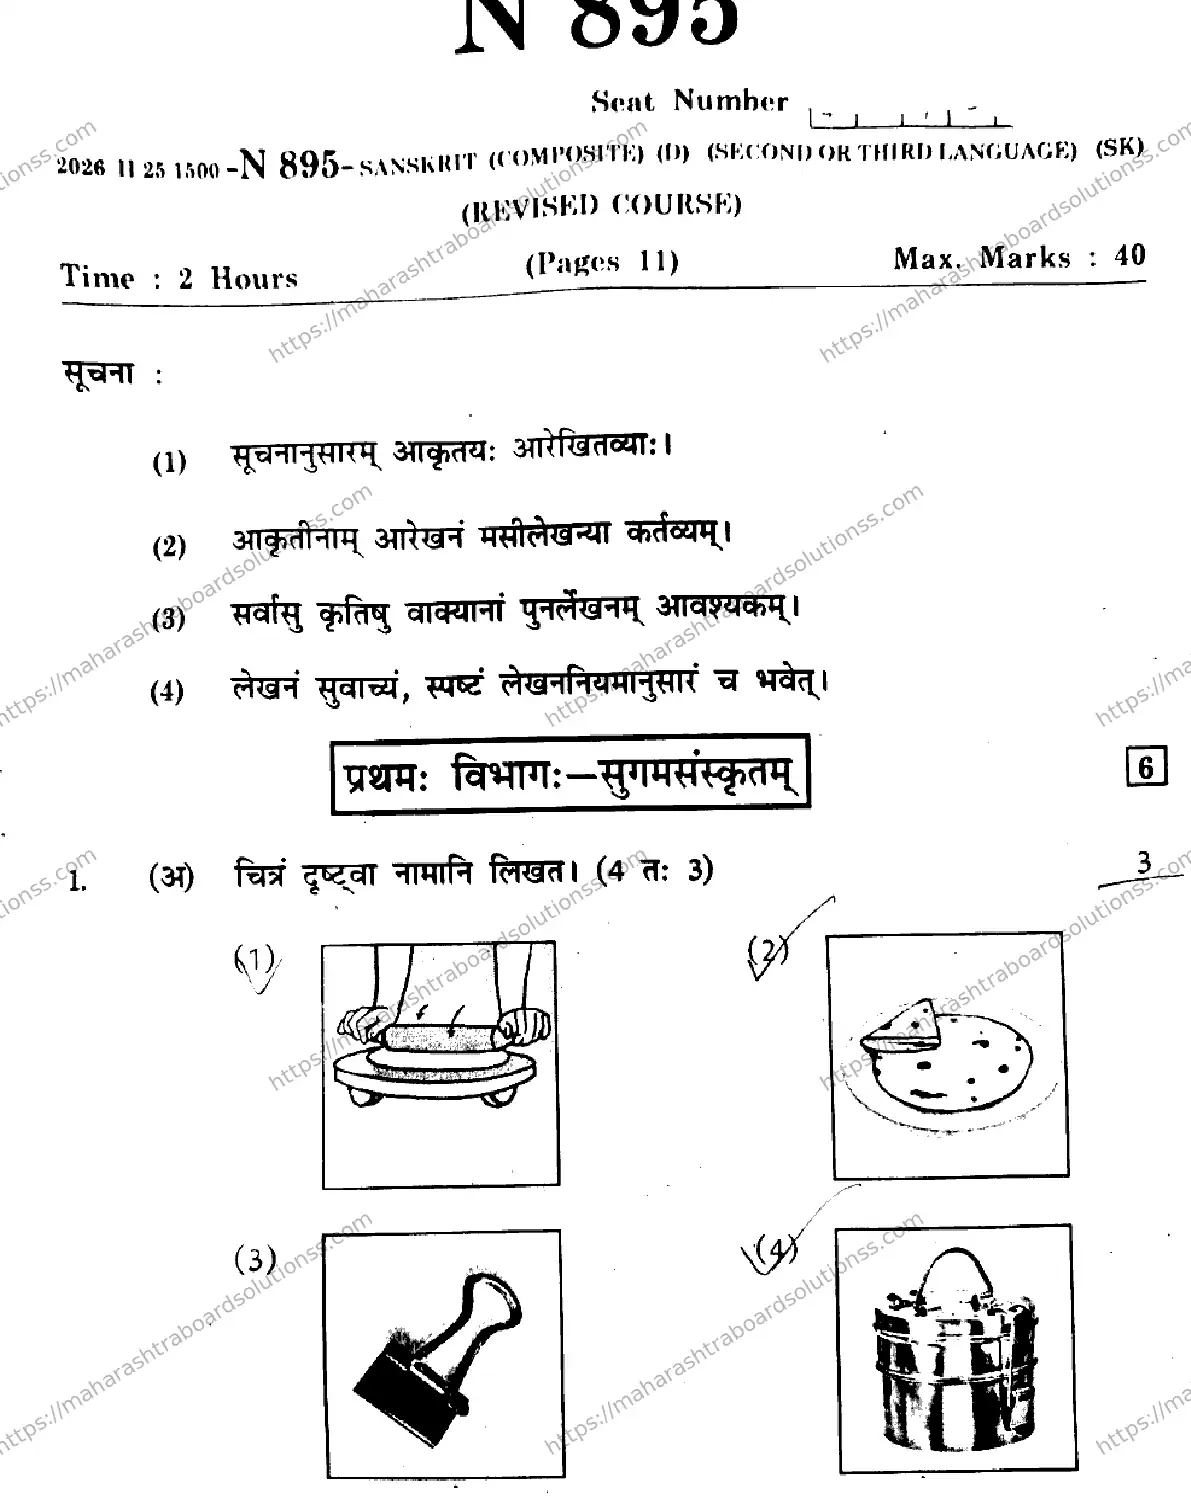 N 895
Seat Number
2026 II 25 1500 -N 895- SANSKRIT (COMPOSITE) (D) (SECOND OR THIRD LANGUAGE) (SK)
(REVISED COURSE)
Time : 2 Hours (Pages 11) Max. Marks : 40
सूचना :
(1) सूचनानुसारम् आकृतयः आरेखितव्याः।
(2) आकृतीनाम् आरेखनं मसीलेखन्या कर्तव्यम्।
(3) सर्वासु कृतिषु वाक्यानां पुनर्लेखनम् आवश्यकम्।
(4) लेखनं सुवाच्यं, स्पष्टं लेखननियमानुसारं च भवेत्।
प्रथमः विभागः—सुगमसंस्कृतम् 6
1. (अ) चित्रं दृष्ट्वा नामानि लिखत। (4 तः 3) 3
(1) (2)
(3) (4)
https://maharashtraboardsolutionss.com